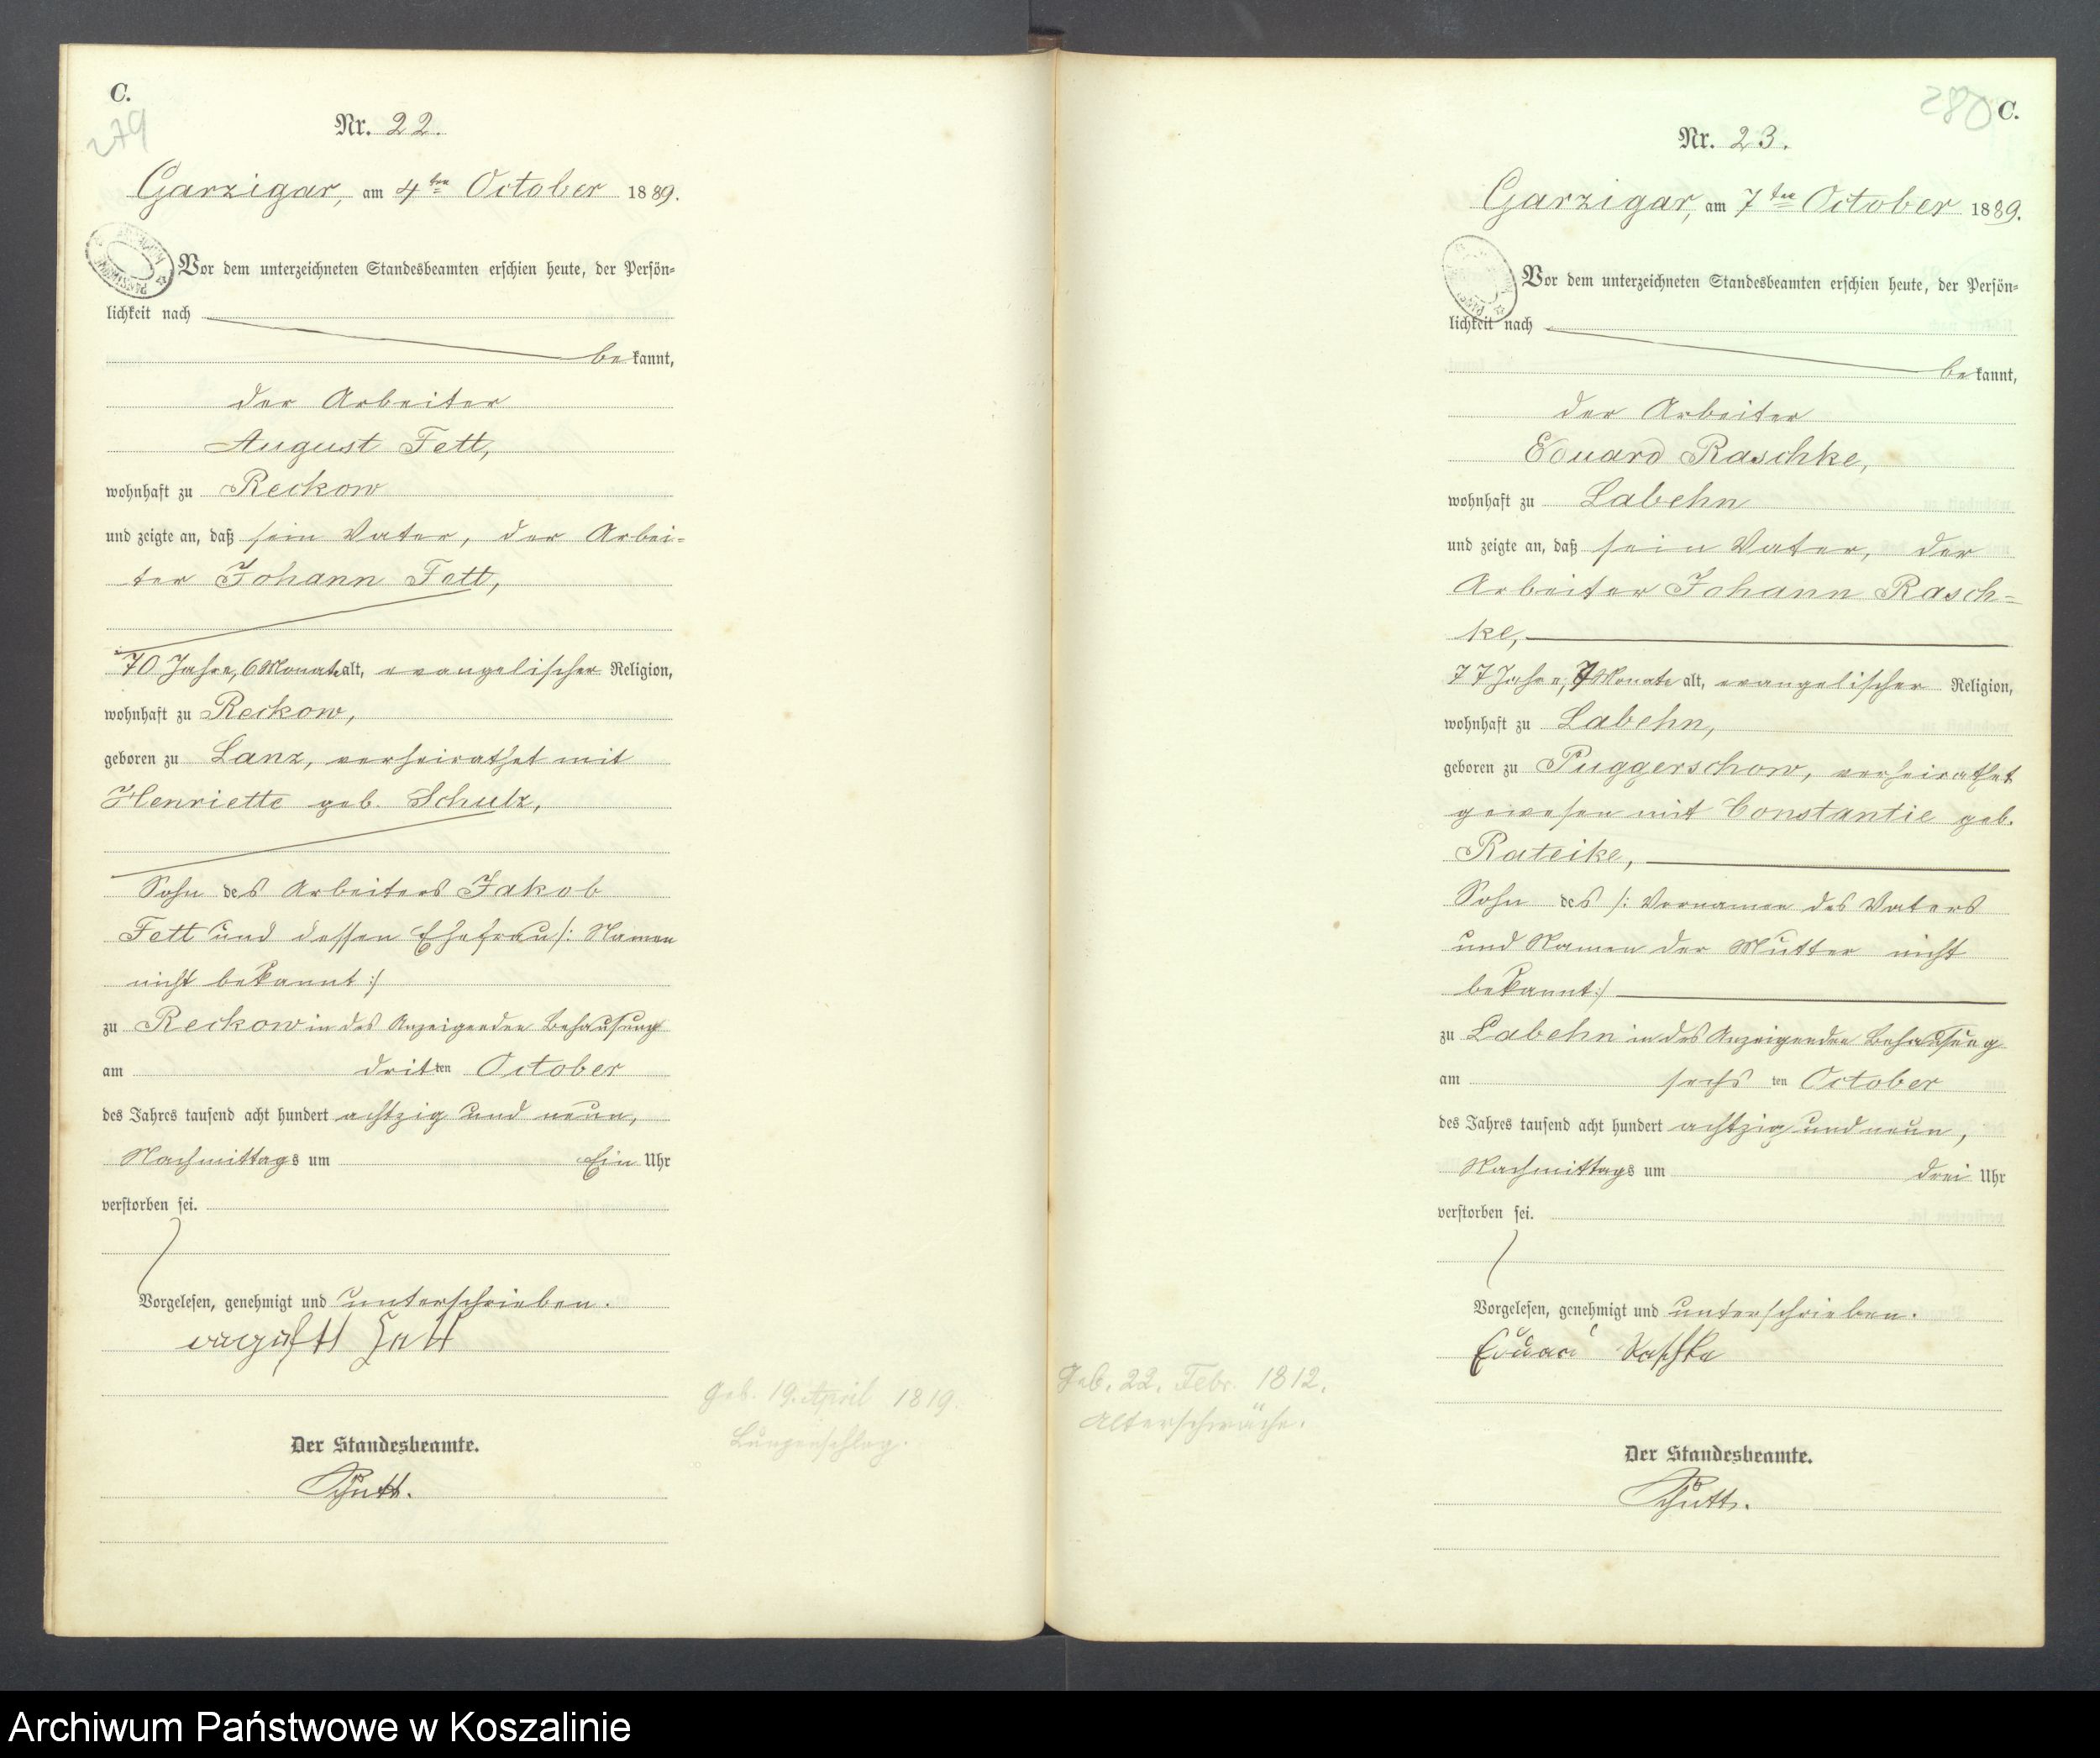 C.
279
Nr. 22.
Garzigar, am 4ten October 1889.
Vor dem unterzeichneten Standesbeamten erschien heute, der Persön=
lichkeit nach
bekannt,
der Arbeiter
August Fett,
wohnhaft zu Reckow
und zeigte an, daß sein Vater, der Arbei=
ter Johann Fett,
70 Jahre, 6 Monate alt, evangelischer Religion,
wohnhaft zu Reckow,
geboren zu Lanz, verheirathet mit
Henriette geb. Schulz,
Sohn des Arbeiters Jakob
Fett und dessen Ehefrau /: Namen
nicht bekannt :/
zu Reckow in des Anzeigenden Behausung
am dritten October
des Jahres tausend acht hundert achtzig und neun,
Nachmittags um Ein Uhr
verstorben sei.
Vorgelesen, genehmigt und unterschrieben.
Fett
Der Standesbeamte.
Schütt.
Geb. 19. April 1819.
Lungenschlag.
280
C.
Nr. 23.
Garzigar, am 7ten October 1889.
Vor dem unterzeichneten Standesbeamten erschien heute, der Persön=
lichkeit nach
bekannt,
der Arbeiter
Eduard Raschke,
wohnhaft zu Labehn
und zeigte an, daß sein Vater, der
Arbeiter Johann Rasch=
ke,
77 Jahre, 7 Monate alt, evangelischer Religion,
wohnhaft zu Labehn,
geboren zu Puggerschow, verheirathet
gewesen mit Constantie geb.
Rateike,
Sohn des /: Vornamen des Vaters
und Namen der Mutter nicht
bekannt :/
zu Labehn in des Anzeigenden Behausung
am sechsten October
des Jahres tausend acht hundert achtzig und neun,
Nachmittags um drei Uhr
verstorben sei.
Vorgelesen, genehmigt und unterschrieben.
Eduard Raschke
Der Standesbeamte.
Schütt.
Geb. 22. Febr. 1812.
Alterschwäche.
Archiwum Państwowe w Koszalinie